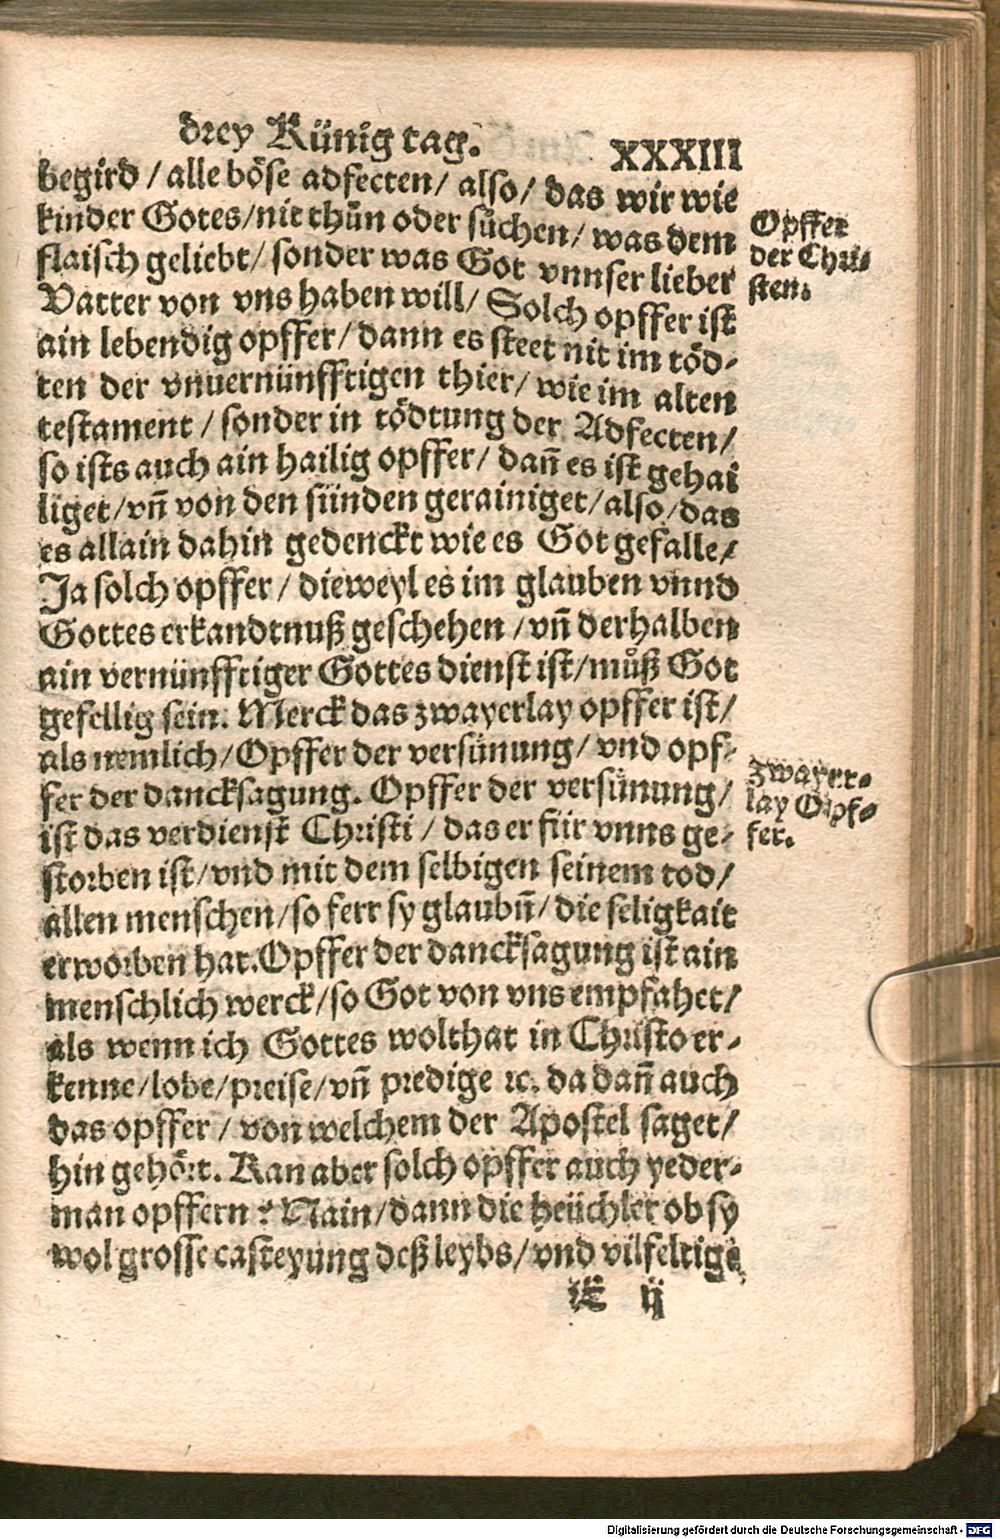 drey Künig tag. XXXIII
begird / alle böse adfecten / also / das wir wie
kinder Gotes / nit thůn oder sůchen / was dem
flaisch geliebt / sonder was Got vnnser lieber
Vatter von vns haben will / Solch opffer ist
ain lebendig opffer / dann es steet nit im töd-
ten der vnuernünfftigen thier / wie im alten
testament / sonder in tödtung der Adfecten /
so ists auch ain hailig opffer / dañ es ist gehai
liget / vñ von den sünden gerainiget / also / das
es allain dahin gedenckt wie es Got gefalle /
Ja solch opffer / dieweyl es im glauben vnnd
Gottes erkandtnuß geschehen / vñ derhalben
ain vernünfftiger Gottes dienst ist / můß Got
gefellig sein. Merck das zwayerlay opffer ist /
als nemlich / Opffer der versünung / vnd opf-
fer der dancksagung. Opffer der versünung /
ist das verdienst Christi / das er für vnns ge-
storben ist / vnd mit dem selbigen seinem tod /
allen menschen / so ferr sy glaubñ / die seligkait
erworben hat. Opffer der dancksagung ist ain
menschlich werck / so Got von vns empfahet /
als wenn ich Gottes wolthat in Christo er-
kenne / lobe / preise / vñ predige ꝛc. da dañ auch
das opffer / von welchem der Apostel saget /
hin gehört. Kan aber solch opffer auch yeder-
man opffern? Nain / dann die heüchler ob sy
wol grosse casteyung deß leybs / vnd vilfeltige
E ij
Opffer
der Chri-
sten.
zwayer-
lay Opf-
fer.
Digitalisierung gefördert durch die Deutsche Forschungsgemeinschaft - DFG